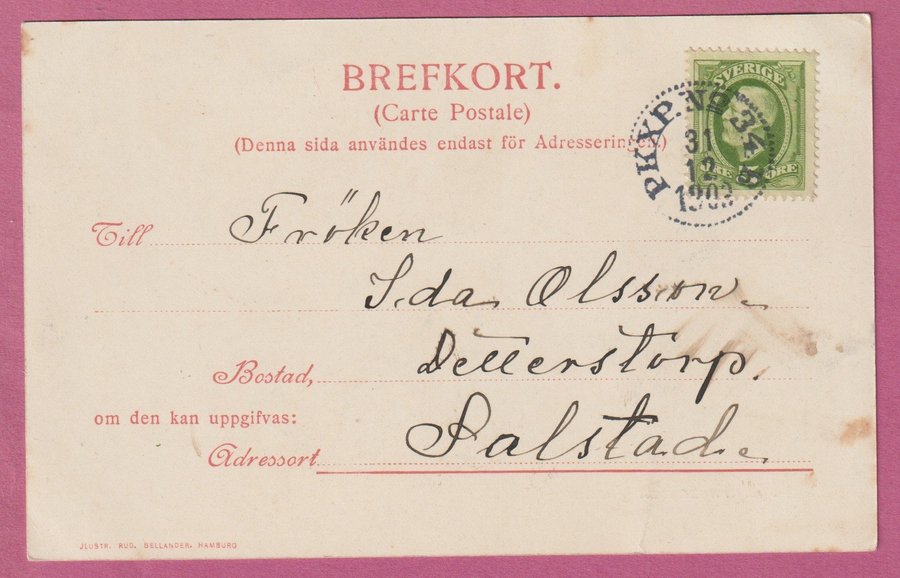 BREFKORT.
(Carte Postale)
(Denna sida användes endast för Adresseringen.)
SVERIGE
ÖRE 5 ÖRE
PKXP. No 34
31
12
1903
Till Fröken
Ida Olsson
Detterstorp.
Bostad,
om den kan uppgifvas:
Salstad.
Adressort
JLUSTR. RUD. BELLANDER, HAMBURG